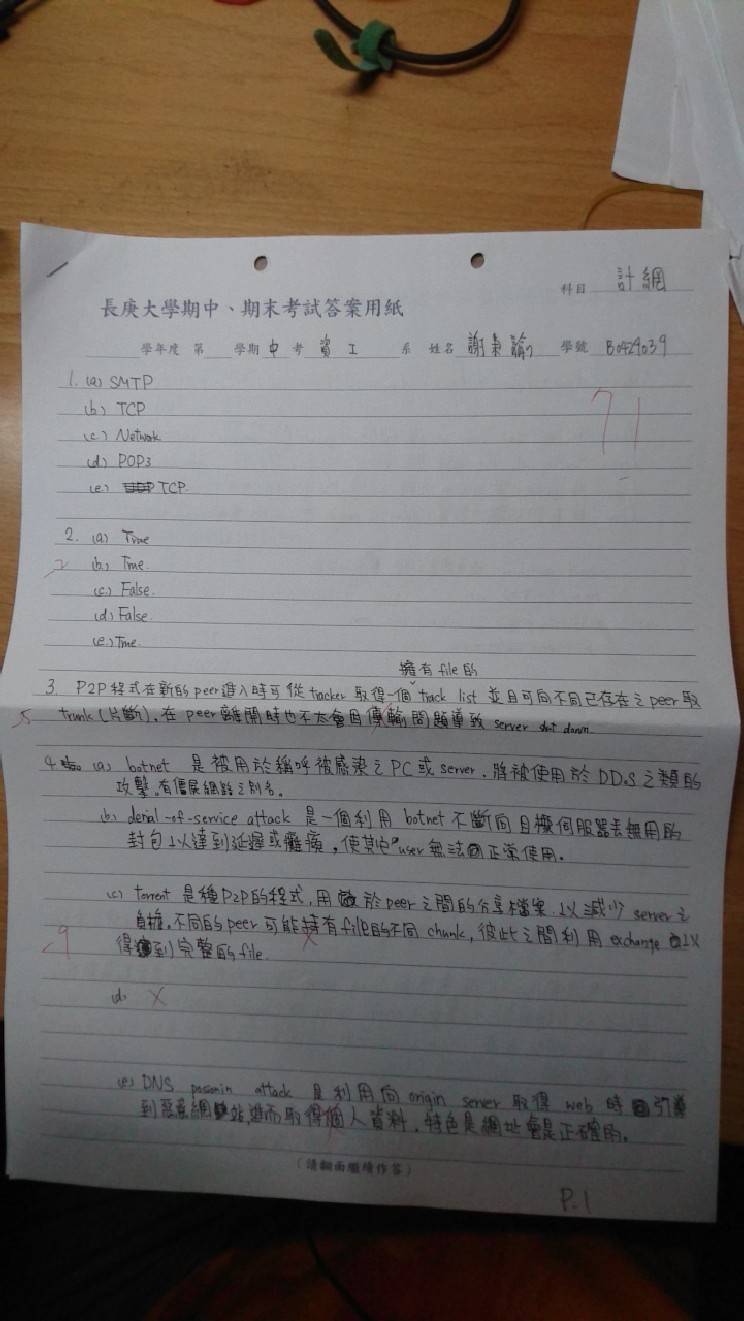 科目 計網
長庚大學期中、期末考試答案用紙
學年度 第 學期 中 考 資工 系 姓名 謝秉 學號 B0429039
71
1. (a) SMTP
(b) TCP
(c) Network
(d) POP3
(e) TCP
2. (a) True
(b) True
(c) False.
(d) False
(e) True
擁有 file 的
3. P2P 程式在新的 peer 進入時可從 tracker 取得一個 track list 並且可向不同已存在之 peer 取
trunk (片斷). 在 peer 離開時也不太會因傳輸問題導致 server shut down
4. (a) botnet 是被用於稱呼被感染之 PC 或 server. 將被使用於 DDoS 之類的
攻擊, 有僵屍網路之別名.
(b) denial-of-service attack 是一個利用 botnet 不斷向目標伺服器丟無用的
封包以達到延遲或癱瘓, 使其他 user 無法正常使用.
(c) torrent 是種 P2P 的程式, 用於 peer 之間的分享檔案. 以減少 server 之
負擔. 不同的 peer 可能持有 file 的不同 chunk, 彼此之間利用 exchange 以
得到完整的 file.
(d)
(e) DNS attack 是利用向 origin server 取得 web 時引導
到惡意網站, 進而取得個人資料, 特色是網址會是正確的.
(請翻面繼續作答)
P.1